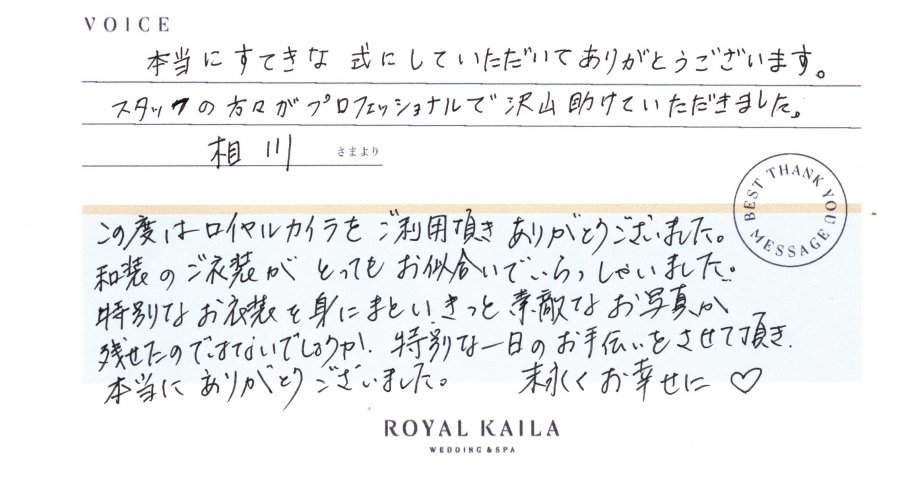 VOICE
本当にすてきな式にしていただいてありがとうございます。
スタッフの方々がプロフェッショナルで沢山助けていただきました。
相川 さまより
BEST THANK YOU MESSAGE
この度はロイヤルカイラをご利用頂きありがとうございました。
和装のご衣装がとってもお似合いでいらっしゃいました。
特別なお衣装を身にまといきっと素敵なお写真が
残せたのではないでしょうか。特別な一日のお手伝いをさせて頂き、
本当にありがとうございました。 末永くお幸せに♡
ROYAL KAILA
WEDDING & SPA